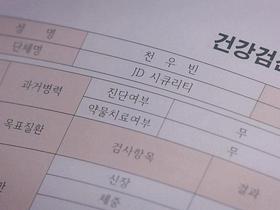 건강검
성 명 천 우 빈
단체명 JD 시큐리티
과거병력 진단여부 무
약물치료여부 무
목표질환 검사항목 결과
신장
체중